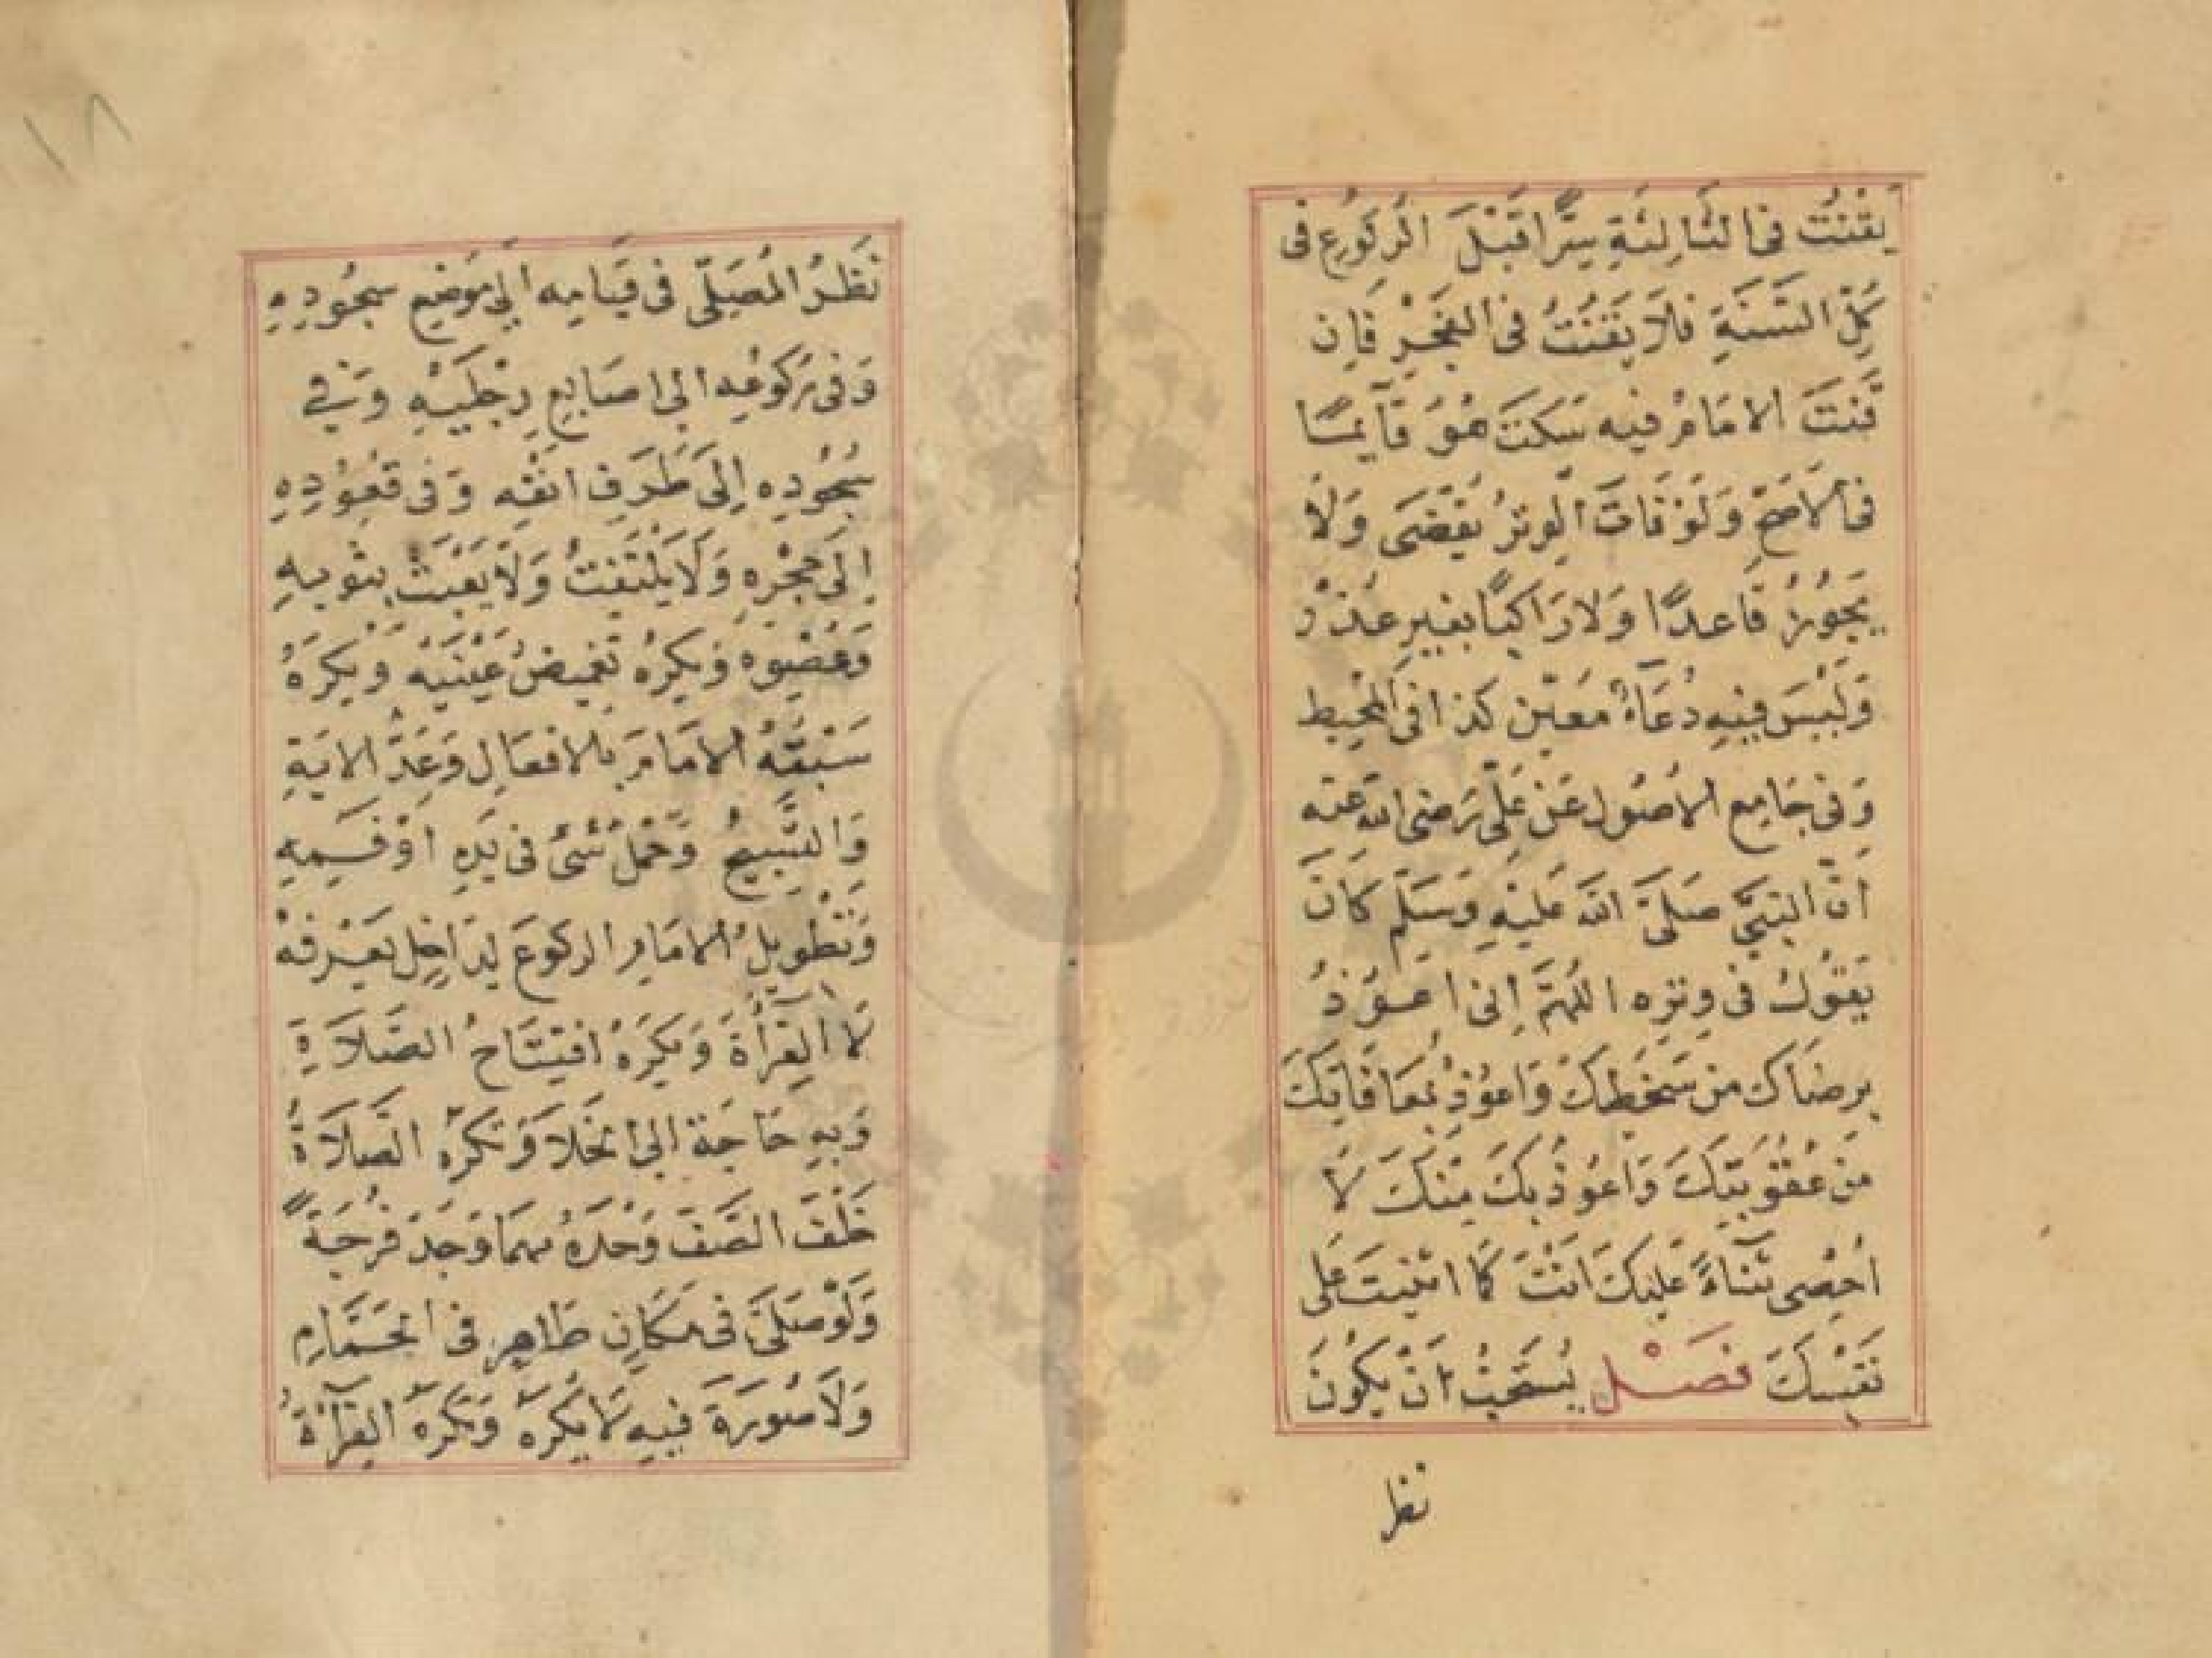 يَقْنُتُ فى الثالِثَةِ سِرًّا قَبْلَ الرُكُوُعِ فى
كُلِّ السَّنَةِ فَلَا يَقْنُتُ فى الفَجْرِ فَاِن
قَنَتَ الامَامُ فيه سَكَتَ هُوَ قَآيمًا
فى الاَصَحِّ وَلَوْ فَاتَ الوِترُ يَقْضَى وَلَا
يَجُوزُ قَاعدًا وَلا رَاكبًا بغيرِ عُذْرٍ
وَلَيْسَ فيهِ دُعَآءٌ مُعَيّن كذا فى المُحِيط
وَفى جَامِع الاُصُول عَن عَلّى رَضى الله عنه
اَنّ النبيَّ صَلىَّ الله عَليْهِ وَسَلَّم كَانَ
يَقوُلُ فى وِترِه اللّهُمَّ اِنى اعوُذُ
برِضَاك من سَخَطِكَ وَاعوُذُ بمعَافَاتِكَ
مِن عُقُوبَتِكَ وَاَعوُذُ بِكَ مِنْكَ لَا
اُحْصى ثَنآءً عَليكَ اَنْتَ كَما اثنيتَ عَلى
نَفْسِكَ فصَـْل يُسْتَحَبُّ اَنْ يَكُونَ
نظر
١٨
نَظَرُ المُصَلّى فى قِيَامِه الى مَوضِعِ سجُودِهِ
وَفى رُكوُعِه الى اصَابِعِ رِجْلَيْهِ وَفى
سُجُودِه اِلَى طَرَفِ انفِه وَفى قعُودِهِ
اِلَى حِجْرِهِ وَلَا يَلتَفِتُ وَلَا يَعْبَثُ بِثوبِهِ
وَعُضْوِه وَيكرَهُ تَغميضُ عَيْنَيْهِ وَيكرَهُ
سَبْقُهُ الامَامَ بالافعَالِ وَعَدُّ الايَةِ
وَالتَّسْبيحُ وَحَمْلُ شَىْءٍ فى يَدِهِ اوْ فَمِهِ
وَتَطْوِيلُ الامَامِ الركوعَ لِدَاخِلٍ يَعْرِفهُ
لَا القِرْأَةَ وَيَكرَهُ افتِتَاحُ الصَّلَاةِ
وَبِهِ حَاجَة الى الخَلَا وَتَكرَهُ الصَّلَاةُ
خَلْفَ الصَّفِّ وَحْدَهُ مهمَا وَجَدَ فُرْجَةً
وَلَوْ صَلىَّ فى مَكَانٍ طَاهِرٍ فى الحَمَّام
وَلَا صُورَةَ فيهِ لَا يكرَهُ وَتكرَهُ القِرَآءَةُ